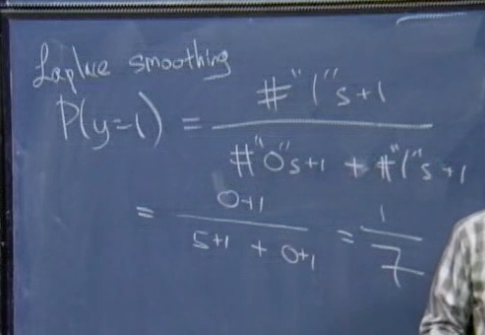 Laplace smoothing
P(y=1) = #"1"s+1 / #"0"s+1 + #"1"s+1
= 0+1 / 5+1 + 0+1 = 1/7